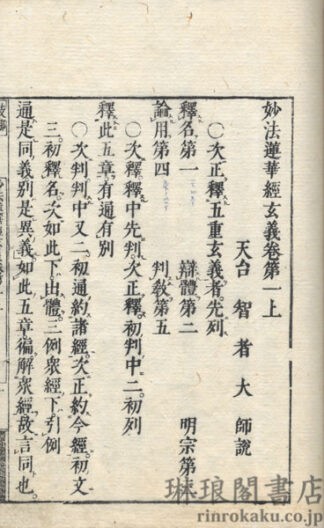 妙法蓮華經玄義卷第一上
天台智者大師說
○次正釋五重玄義者。先列
釋名第一　辯體第二　明宗第
論用第四　判教第五
○次釋釋中先判。次正釋。初判中二。初列
釋此五章有通有別
○次判判中又二。初通約諸經。次正約今經。初文
三。初釋名。次如此下出體。三例衆經下引例
通是同義別是異義如此五章徧解衆經故言同也。
琳琅閣書店
rinrokaku.co.jp